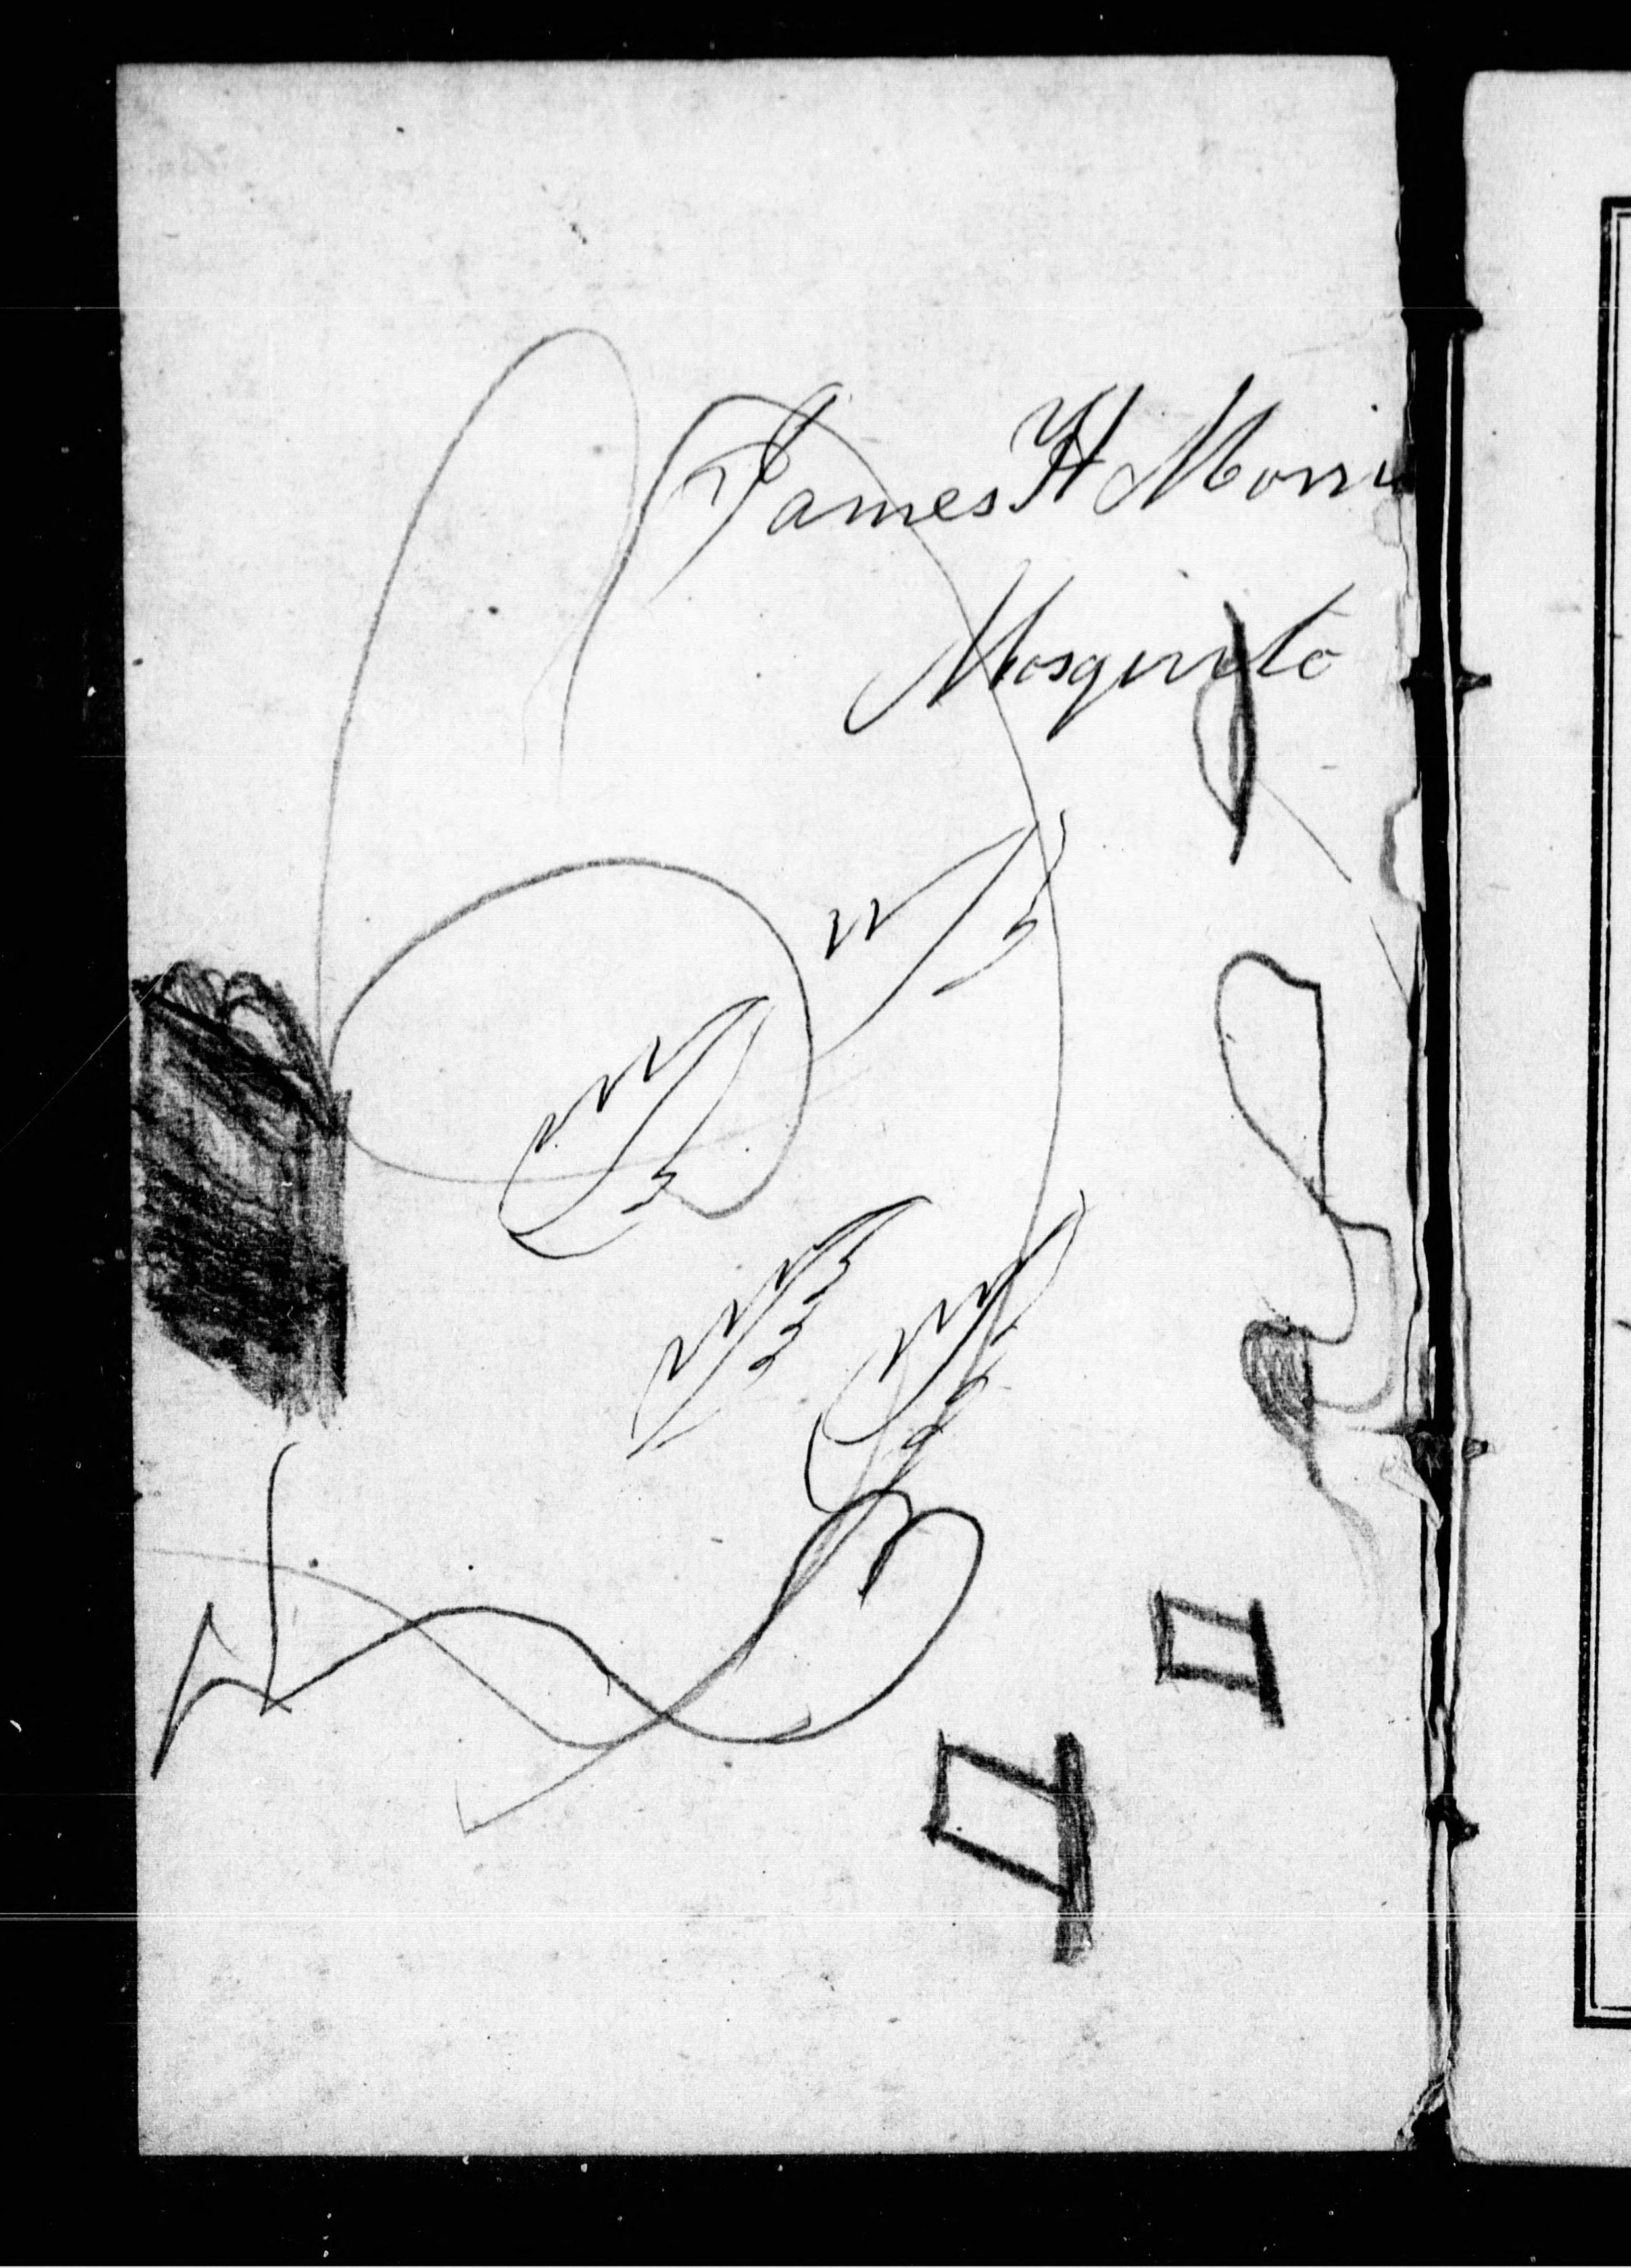 James H Morri
Mosquito